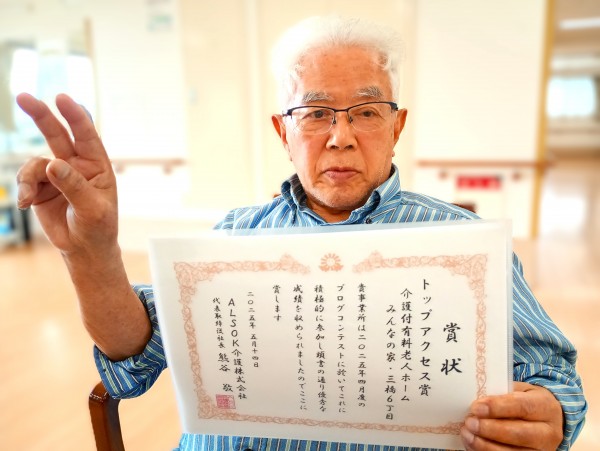 賞状
トップアクセス賞
介護付有料老人ホーム
みんなの家・三橋6丁目
貴事業所は二〇二五年四月度の
ブログコンテストに於いてこれに
積極的に参加し頭書の通り優秀な
成績を収められましたのでここに
賞します
二〇二五年 五月十四日
ALSOK介護株式会社
代表取締役社長 熊谷 敬